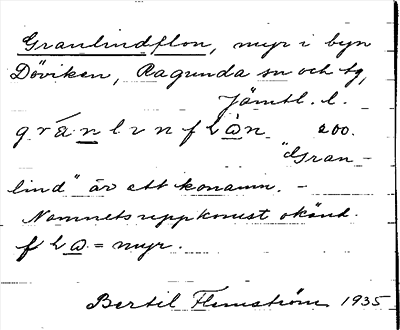 Granlindflon, myr i byn
Döviken, Ragunda sn och tg,
Jämtl. l.
gránlınflɷ̀n 200.
"Gran-
lind" är ett konamn. -
Namnets uppkomst okänd.
flɷ = myr.
Bertil Flemström 1935